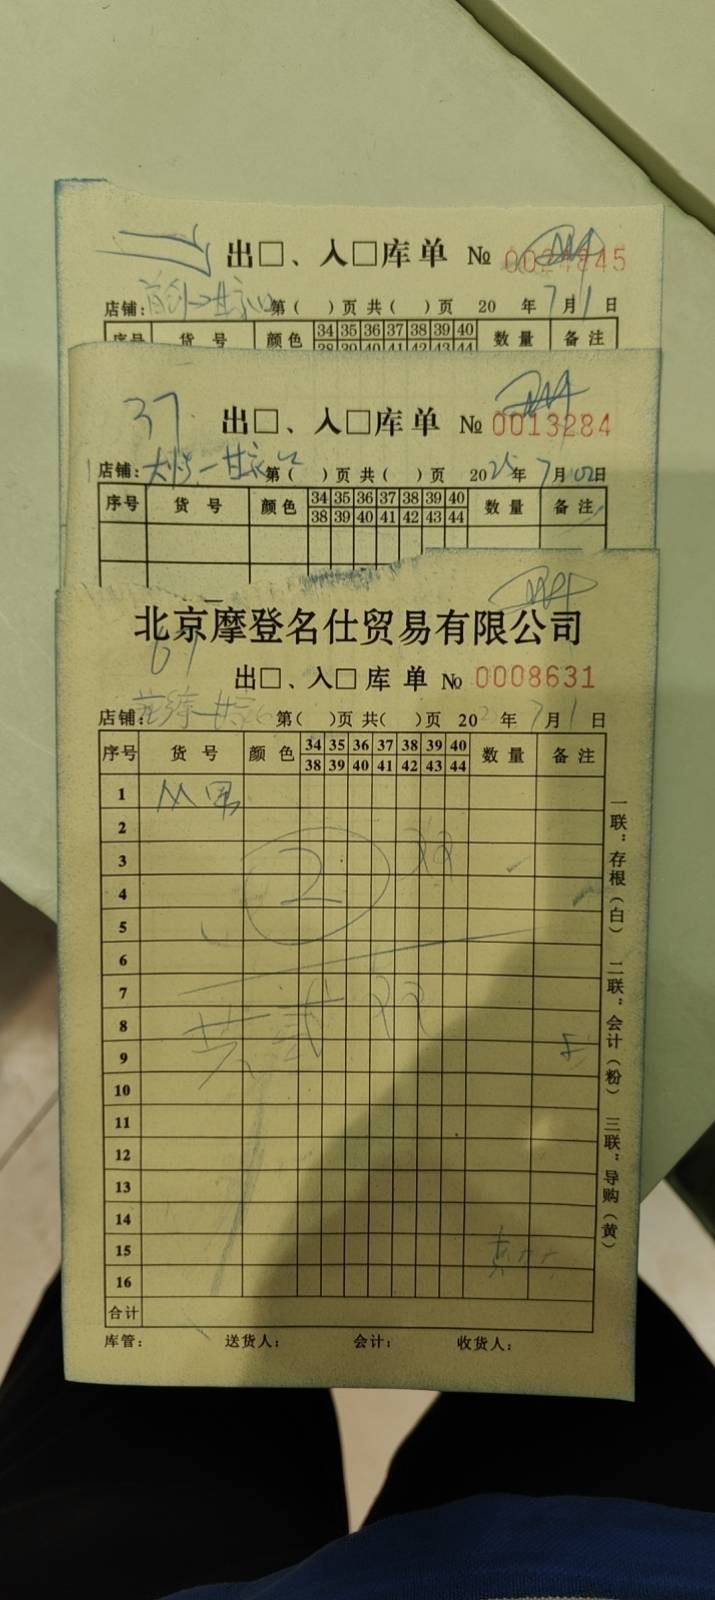 出□、入□库单 № 0024845
店铺: 第( )页 共( )页 20 年7月1日
序号 货号 颜色 34 35 36 37 38 39 40 数量 备注
38 39 40 41 42 43 44
37
出□、入□库单 № 0013284
店铺: 第( )页 共( )页 2025年7月02日
序号 货号 颜色 34 35 36 37 38 39 40 数量 备注
38 39 40 41 42 43 44
北京摩登名仕贸易有限公司
61
出□、入□库单 № 0008631
店铺: 第( )页 共( )页 202 年7月1日
序号 货号 颜色 34 35 36 37 38 39 40 数量 备注
38 39 40 41 42 43 44
1
2
3
2 双
4
5
6
7
8
共贰双
9
10
11
12
13
14
15
16
合计
库管: 送货人: 会计: 收货人:
一联:存根(白) 二联:会计(粉) 三联:导购(黄)